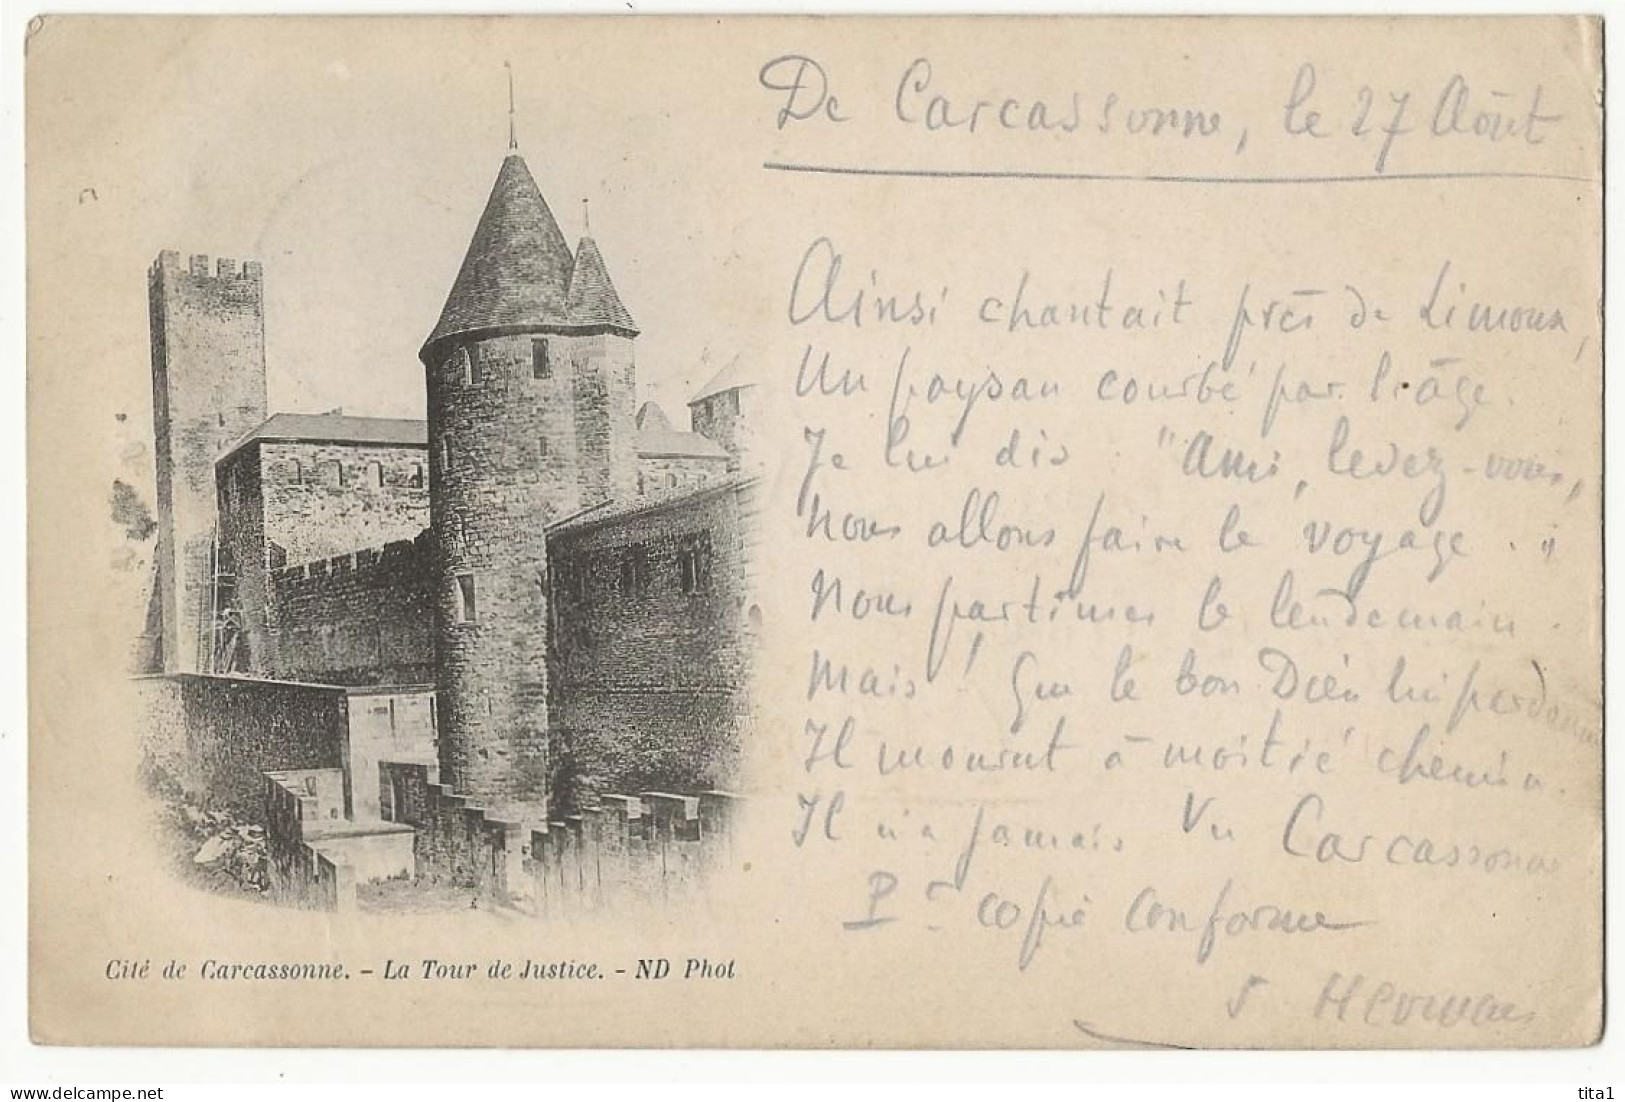 De Carcassonne, le 27 Août
Ainsi chantait près de Limoux,
Un paysan courbé par l'âge.
Je lui dis. "Ami, levez-vous,
Nous allons faire le voyage."
Nous partîmes le lendemain.
Mais! Que le bon Dieu lui pardonne
Il mourut à moitié chemin.
Il n'a jamais vu Carcassonne
Pr copie conforme
Cité de Carcassonne. - La Tour de Justice. - ND Phot
tita1